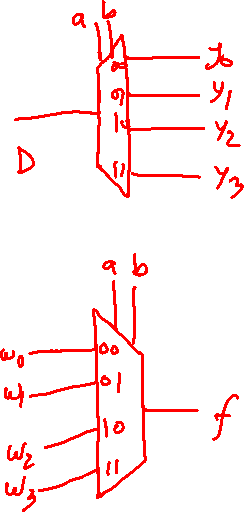 a b
00 y0
01 y1
D 10 y2
11 y3
a b
w0 00
w1 01
f
w2 10
w3 11